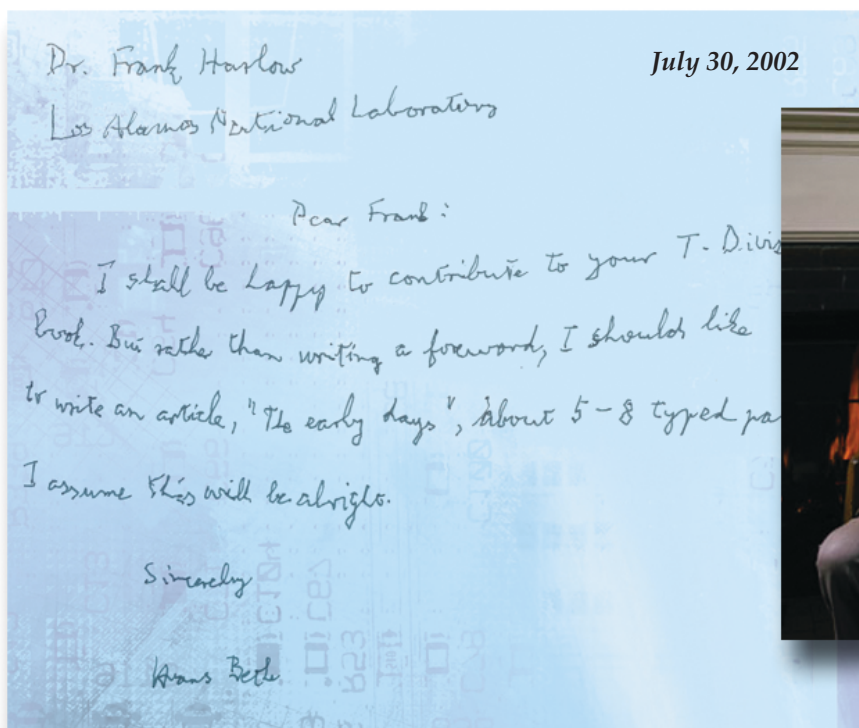 Dr. Frank Harlow
July 30, 2002
Los Alamos National Laboratory
Dear Frank:
I shall be happy to contribute to your T-Divis
book. But rather than writing a foreword, I should like
to write an article, "The early days", about 5-8 typed pa
I assume this will be alright.
Sincerely
Hans Bethe